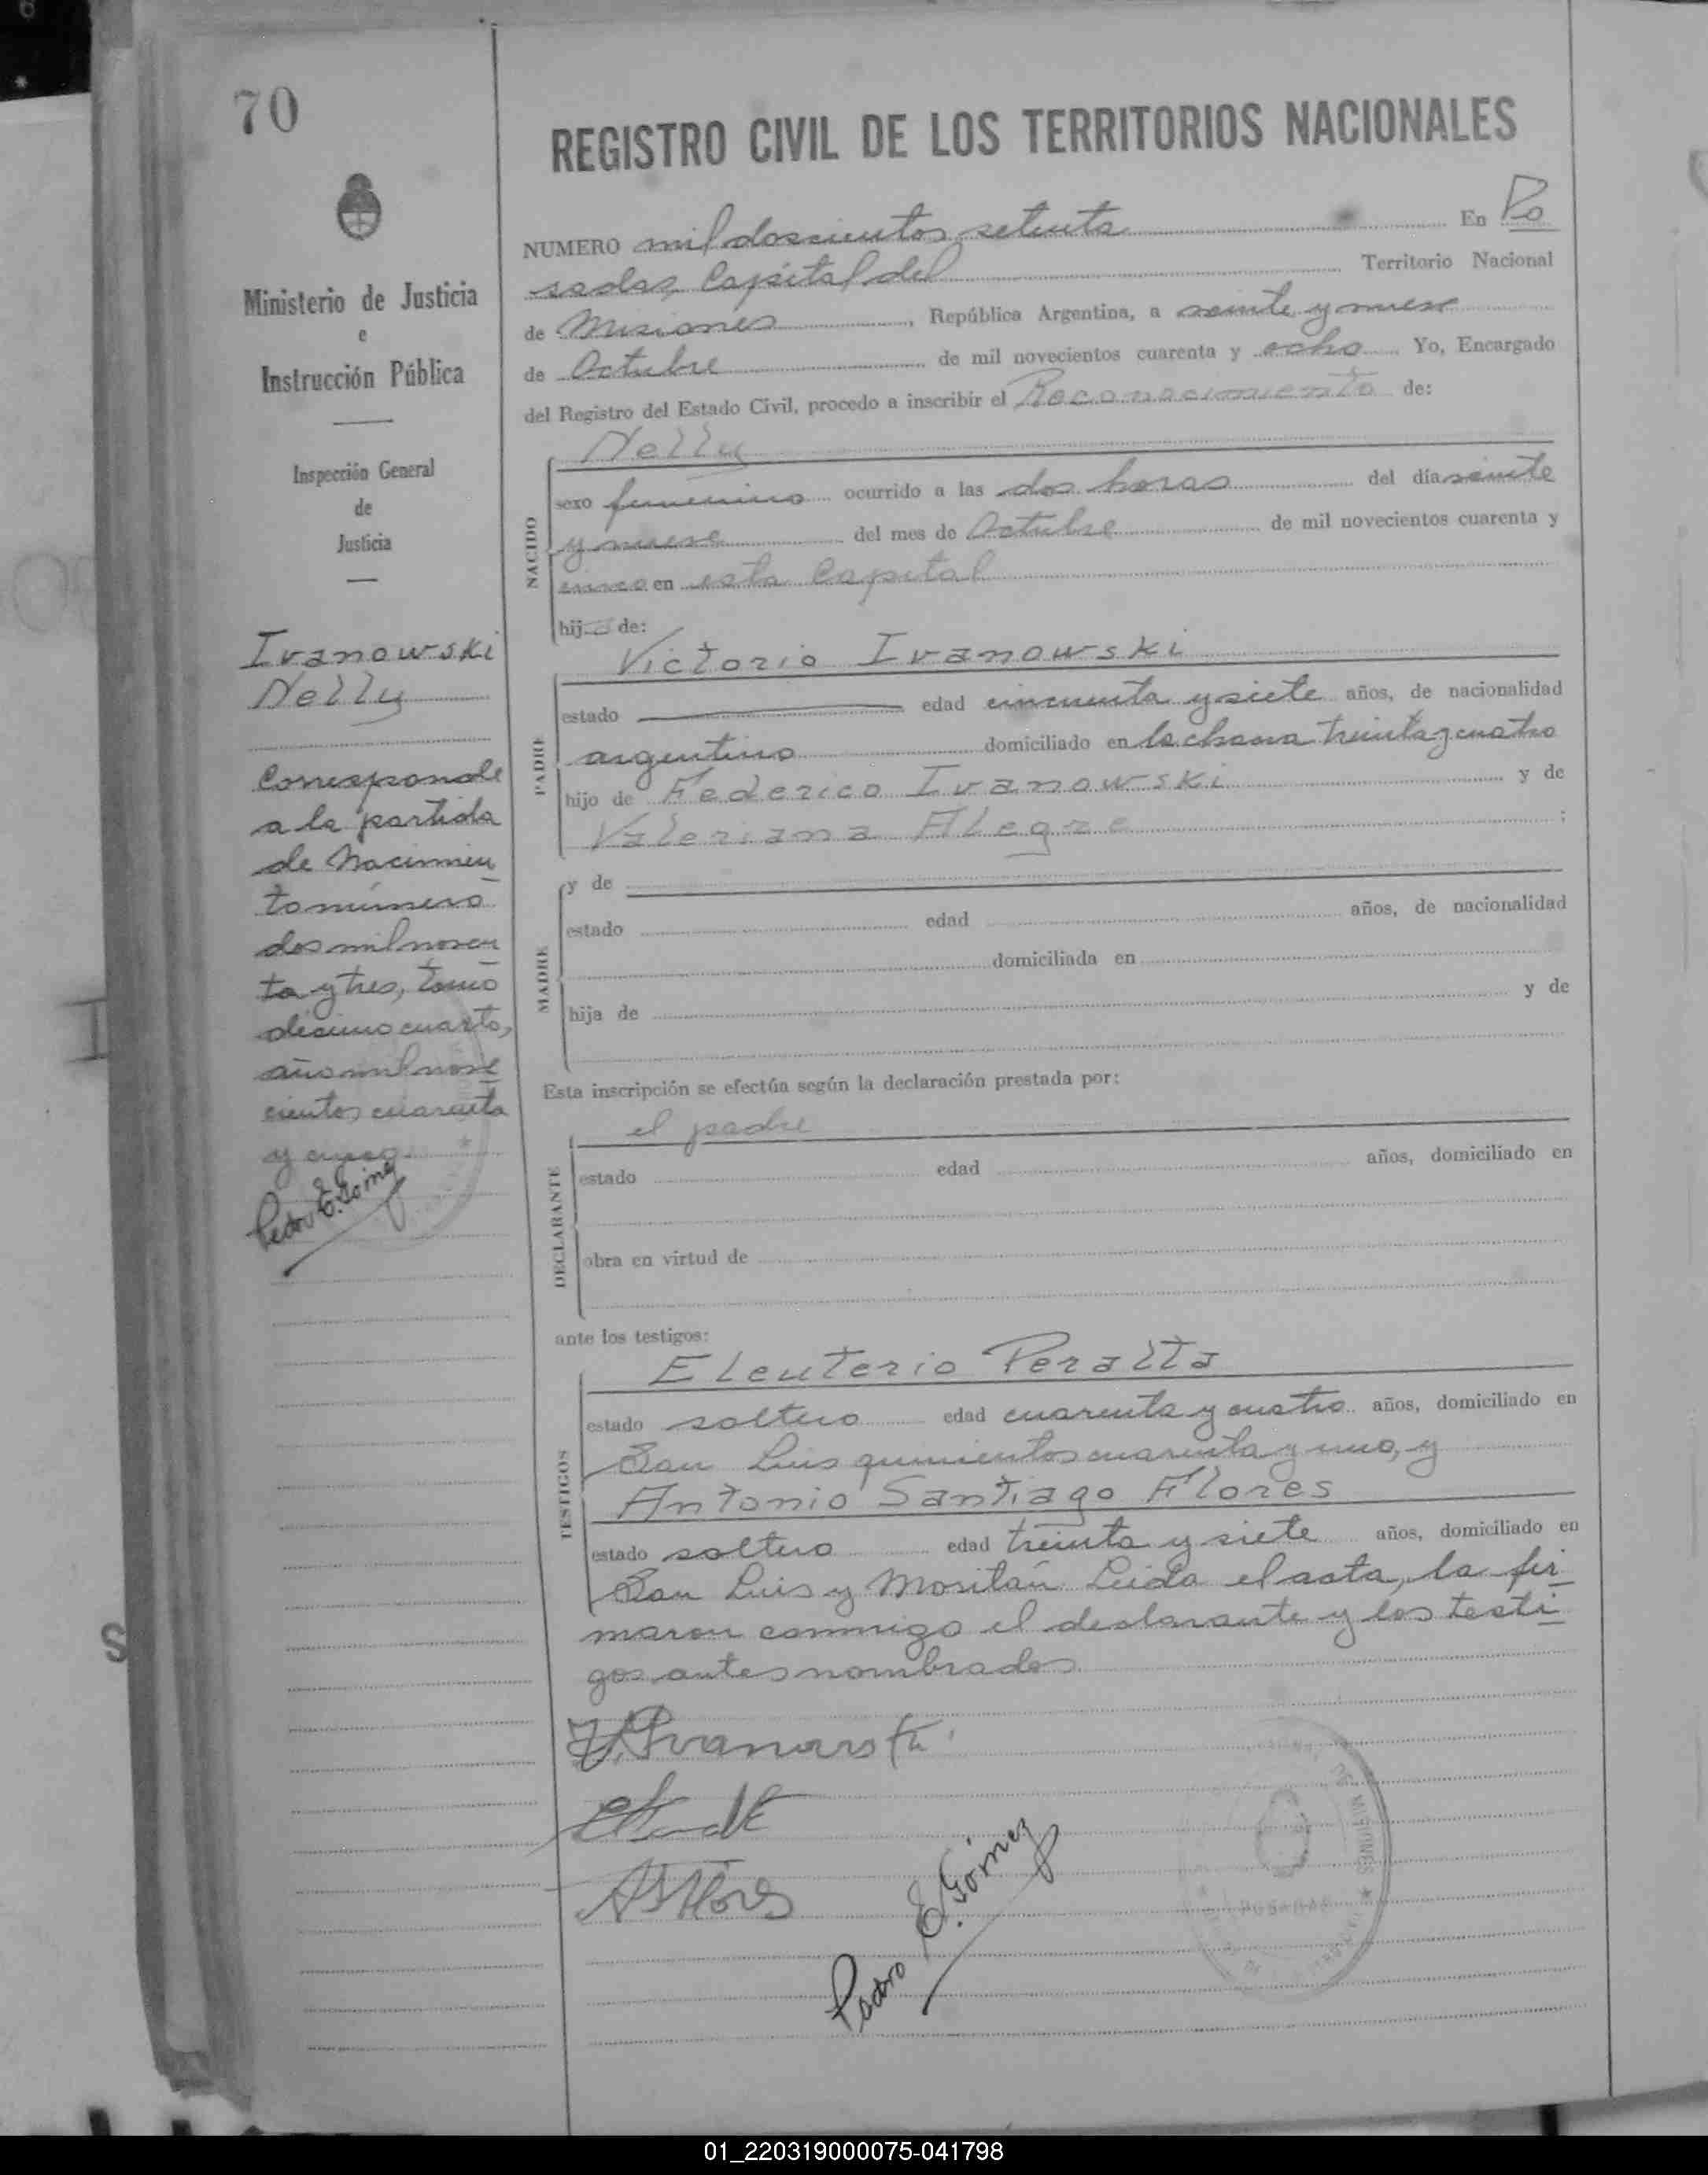 70
Ministerio de Justicia
e
Instrucción Pública
Inspección General
de
Justicia
Ivanowski
Nelly
Corresponde
a la partida
de Nacimien
to número
dos mil noven
ta y tres, tomo
décimo cuarto,
año mil nove
cientos cuarenta
y cinco.
Pedro E. Gómez
REGISTRO CIVIL DE LOS TERRITORIOS NACIONALES
NUMERO mil doscientos setenta En Po
sadas, Capital del Territorio Nacional
de Misiones, República Argentina, a veinte y nueve
de Octubre de mil novecientos cuarenta y ocho Yo, Encargado
del Registro del Estado Civil, procedo a inscribir el Reconocimiento de:
Nelly
NACIDO
sexo femenino ocurrido a las dos horas del día veinte
y nueve del mes de Octubre de mil novecientos cuarenta y
cinco en esta Capital
hija de:
Victorio Ivanowski
PADRE
estado edad cincuenta y siete años, de nacionalidad
argentino domiciliado en la chacra treinta y cuatro
hijo de Federico Ivanowski y de
Valeriana Alegre ;
MADRE
y de
estado edad años, de nacionalidad
domiciliada en
hija de y de
Esta inscripción se efectúa según la declaración prestada por:
el padre
DECLARANTE
estado edad años, domiciliado en
obra en virtud de
ante los testigos:
Eleuterio Peralta
TESTIGOS
estado soltero edad cuarenta y cuatro años, domiciliado en
San Luis quinientos cuarenta y uno, y
Antonio Santiago Flores
estado soltero edad treinta y siete años, domiciliado en
San Luis y Moritán. Leída el acta, la fir
maron conmigo el declarante y los testi
gos antes nombrados.
V. Ivanowski
A S Flores
Pedro E. Gómez
DE MISIONES
POSADAS
01_220319000075-041798